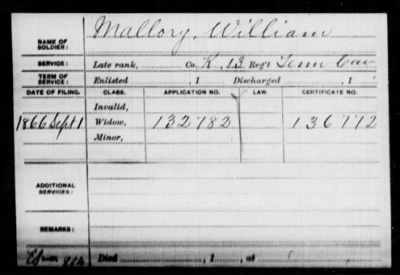 NAME OF SOLDIER: Mallory, William
SERVICE: Late rank, Co. K, 13 Reg't Tenn Cav
TERM OF SERVICE: Enlisted , 1 Discharged , 1
DATE OF FILING. CLASS. APPLICATION NO. LAW CERTIFICATE NO.
Invalid,
1866 Sept 1 Widow, 132782 136772
Minor,
ADDITIONAL SERVICES:
REMARKS:
Died , 1 , at